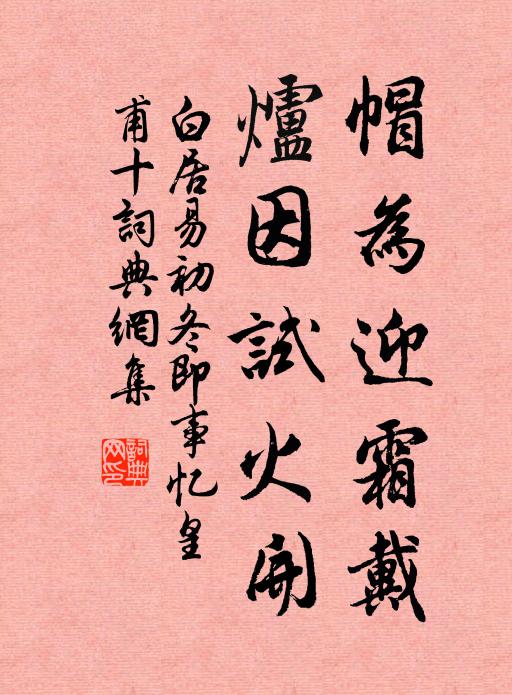 帽為迎霜戴
爐因試火開
白居易初冬即事忆皇
甫十詞典網集
詞典
网印